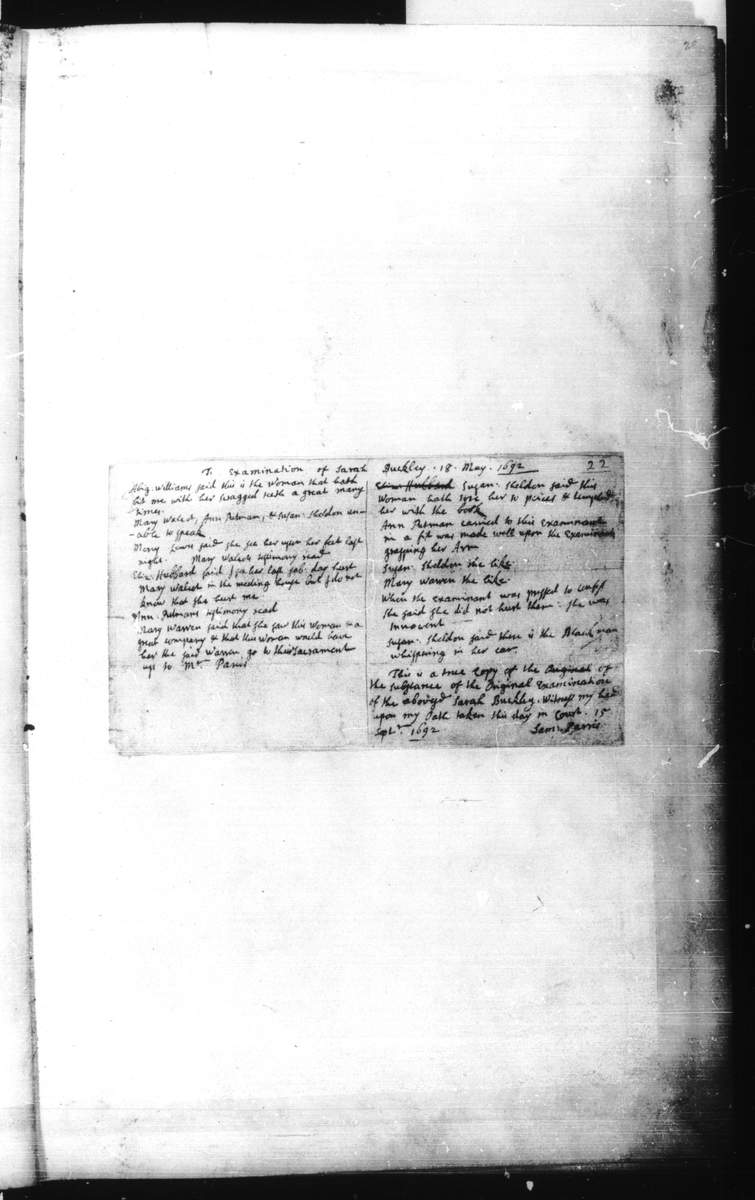 26
T. Examination of Sarah Buckley. 18. May. 1692
22
Abig: williams said this is the woman that hath
bit me with her scragged teeth a great many
times.
Mary Walcot, Ann Putman, & Susan: Sheldon un-
-able to speak
Mercy Lewis said she see her upon her feet last
night. Mary Walcots testimony read
Eliz: Hubbard said I see her last sab: day hurt
Mary Walcot in the meeting house but I do not
know that she hurt me
Ann Putmans testimony read
Mary Warren said that she saw this woman & a
great company & that this woman would have
her the said Warren, go to their Sacrament
up to Mr. Parris
Eliz: Hubbard Susan: Sheldon said this
woman hath tore her to pieces & tempted
her with the book
Ann Putman carried to this Examinant
in a fit was made well upon the Examinants
grasping her Arm
Susan: Sheldon the like
Mary Warren the like
When the Examinant was pressed to confess
she said she did not hurt them: she was
Innocent
Susan: Sheldon said there is the Black man
whispering in her ear.
This is a true Copy of the Original of
the substance of the Original Examination
of the abovesd Sarah Buckley. Witness my hand
upon my Oath taken this day in Court. 15
Sept. 1692
Sam: Parris